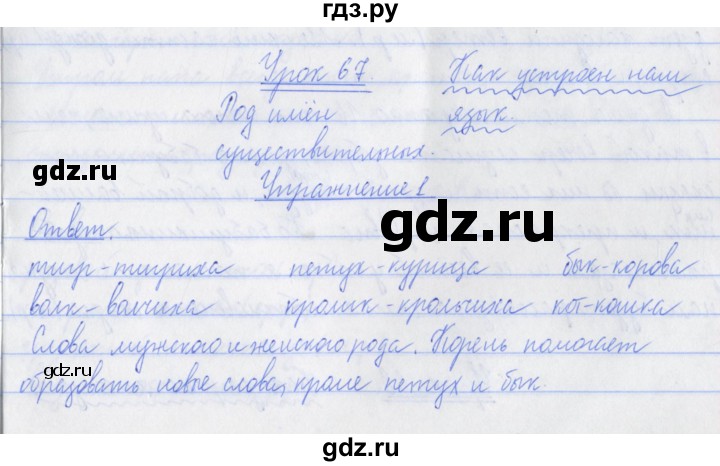 гдз.ру
Урок 67. Как устроен нам
Род имён язык.
существительных.
gdz.ru
Упражнение 1
gdz.ru
Ответ.
тигр-тигриха петух-курица бык-корова
волк-волчиха кролик-крольчиха кот-кошка
Слова мужского и женского рода. Корень помогает
образовать новые слова, кроме петух и бык.
gdz.ru